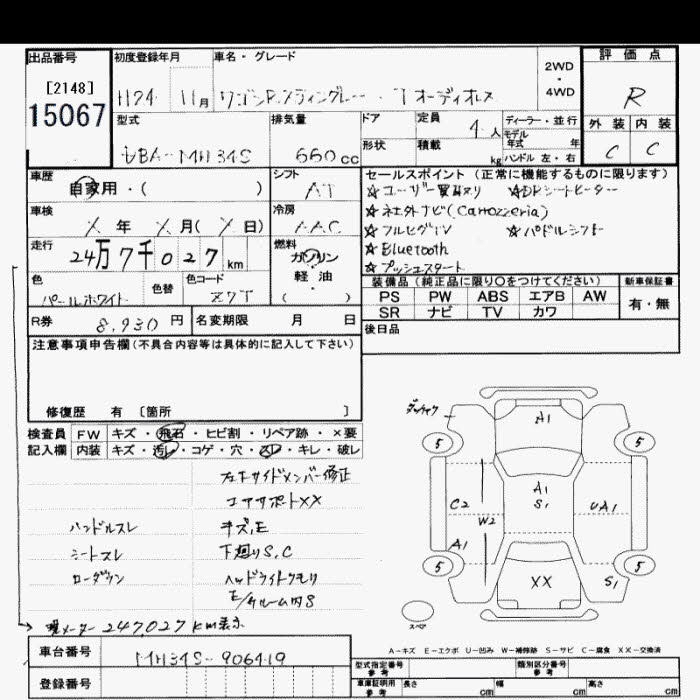 出品番号
[2148]
15067
初度登録年月
H24 11月
車名・グレード
ワゴンR スティングレー ・ T オーディオレス
2WD
・
4WD
評価点
R
外装 内装
C C
型式
DBA-MH34S
排気量
660cc
ドア
形状
定員 4人
積載 kg
ディーラー・並行
モデル年式 年
ハンドル 左・右
車歴
自家用・( )
シフト
AT
車検
X年 X月( X日)
冷房
AAC
走行
24万7千027km
燃料
ガソリン
・
軽・油
( )
色
パールホワイト
色替
色コード
Z7T
R券 8,930円
名変期限 月 日
セールスポイント(正常に機能するものに限ります)
☆ユーザー買取り ☆DRシートヒーター
☆社外ナビ(Carrozzeria)
☆フルセグTV ☆パドルシフト
☆Bluetooth
☆プッシュスタート
装備品(純正品に限り○をつけてください)
PS PW ABS エアB AW
SR ナビ TV カワ
新車保証書
有・無
後日品
注意事項申告欄(不具合内容等は具体的に記入して下さい)
修復歴 有 [箇所 ]
検査員 FW キズ・飛石・ヒビ割・リペア跡・×要
記入欄 内装 キズ・汚レ・コゲ・穴・スレ・キレ・破レ
フロントサイドメンバー修正
コアサポートXX
ハンドルスレ キズ,E
シートスレ 下廻りS,C
ローダウン ヘッドライトクモリ
E/ルーム内S
現メーター 247,027km表示
車台番号 MH34S-906419
登録番号
A1
5 5
A1
S1
C2
W2
UA1
A1
5 5
XX
S1
スペア
A-キズ E-エクボ U-凹み W-補修跡 S-サビ C-腐食 XX-交換済
型式指定番号
参考
類別区分番号
参考
車庫証明用
参考
長さ cm 幅 cm 高さ cm